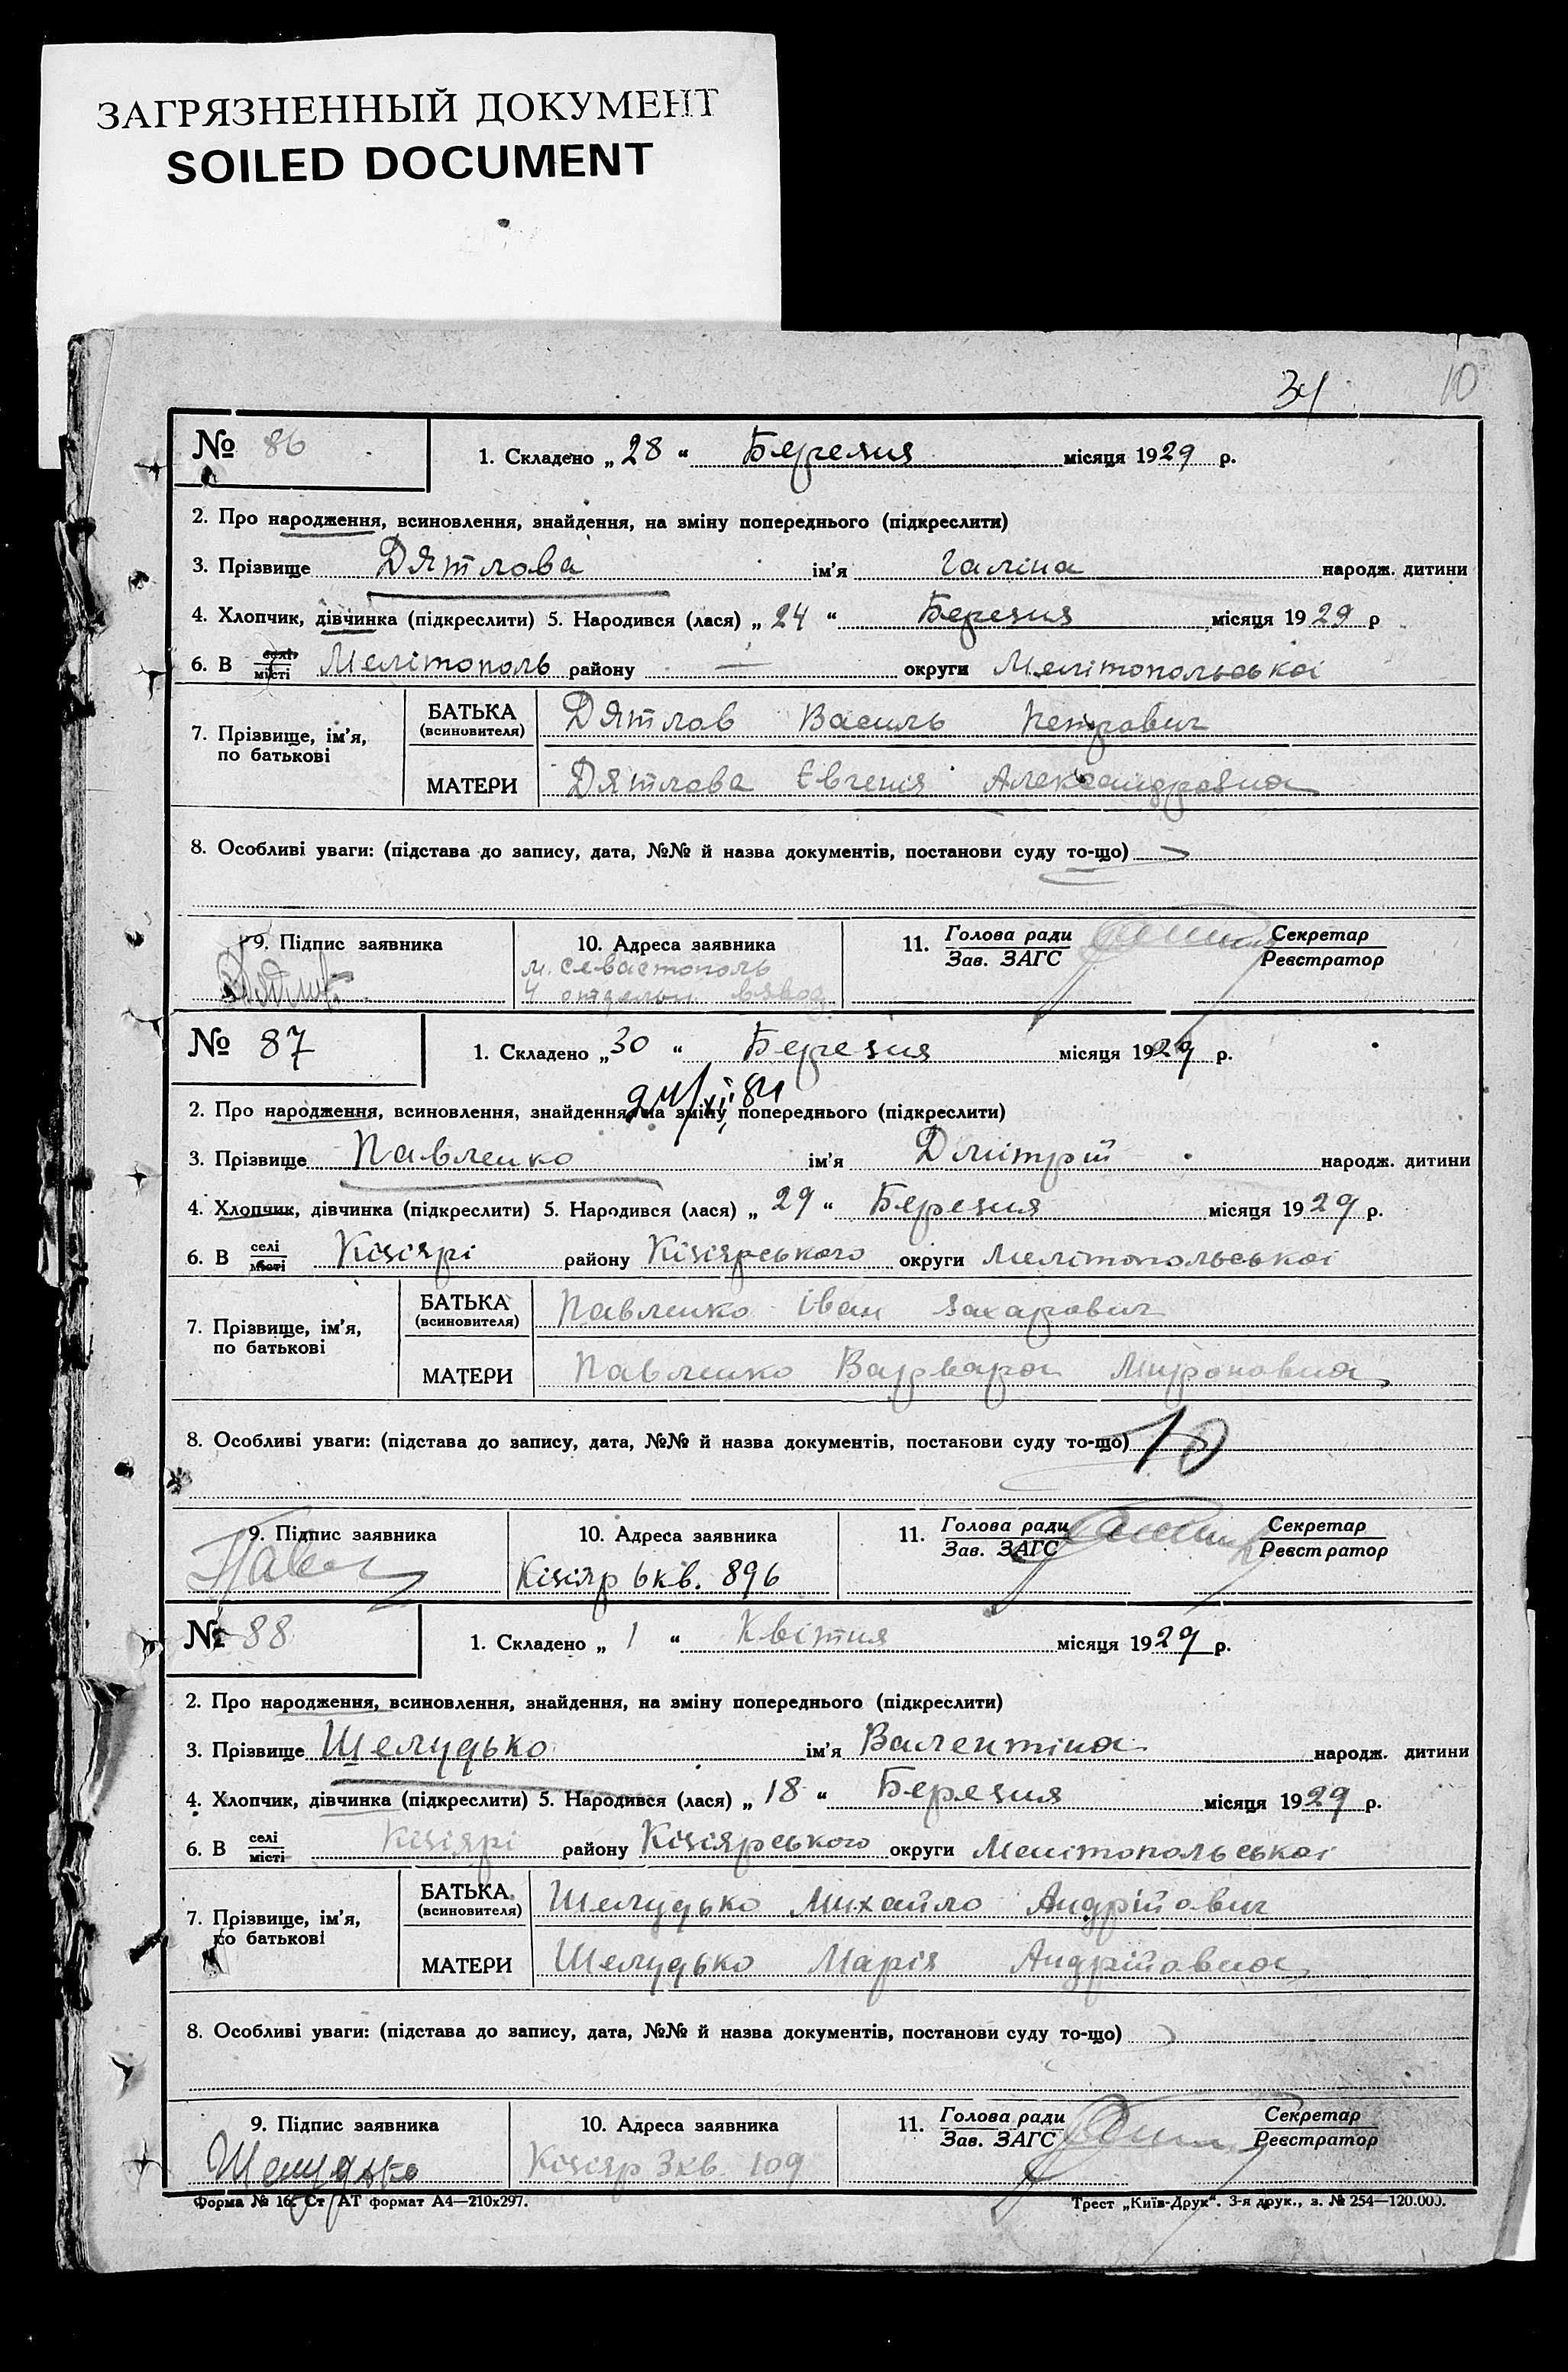 ЗАГРЯЗНЕННЫЙ ДОКУМЕНТ
SOILED DOCUMENT
34 10
№ 86
1. Складено „28“ Березня місяця 1929 р.
2. Про народження, всиновлення, знайдення, на зміну попереднього (підкреслити)
3. Прізвище Дятлова ім’я Галіна народж. дитини
4. Хлопчик, дівчинка (підкреслити) 5. Народився (лася) „24“ Березня місяця 1929 р
6. В селі місті Мелітополь району — округи Мелітопольської
7. Прізвище, ім’я, по батькові
БАТЬКА (всиновителя) Дятлов Василь Петрович
МАТЕРИ Дятлова Євгенія Александровна
8. Особливі уваги: (підстава до запису, дата, №№ й назва документів, постанови суду то-що)
9. Підпис заявника 10. Адреса заявника 11. Голова ради Зав. ЗАГС Секретар Реєстратор
м. Севастополь
4 отдельн взвод
№ 87
1. Складено „30“ Березня місяця 1929 р.
2. Про народження, всиновлення, знайдення, на зміну попереднього (підкреслити)
3. Прізвище Павленко ім’я Дмітрій народж. дитини
4. Хлопчик, дівчинка (підкреслити) 5. Народився (лася) „29“ Березня місяця 1929 р.
6. В селі місті Кізіярі району Кізіярського округи Мелітопольської
7. Прізвище, ім’я, по батькові
БАТЬКА (всиновителя) Павленко Іван Захарович
МАТЕРИ Павленко Варвара Мироновна
8. Особливі уваги: (підстава до запису, дата, №№ й назва документів, постанови суду то-що) 10
9. Підпис заявника 10. Адреса заявника 11. Голова ради Зав. ЗАГС Секретар Реєстратор
Кізіяр 6кв. 896
№ 88
1. Складено „1“ Квітня місяця 1929 р.
2. Про народження, всиновлення, знайдення, на зміну попереднього (підкреслити)
3. Прізвище Шелудько ім’я Валентіна народж. дитини
4. Хлопчик, дівчинка (підкреслити) 5. Народився (лася) „18“ Березня місяця 1929 р.
6. В селі місті Кізіярі району Кізіярського округи Мелітопольської
7. Прізвище, ім’я, по батькові
БАТЬКА (всиновителя) Шелудько Михайло Андрійович
МАТЕРИ Шелудько Марія Андрійовна
8. Особливі уваги: (підстава до запису, дата, №№ й назва документів, постанови суду то-що)
9. Підпис заявника 10. Адреса заявника 11. Голова ради Зав. ЗАГС Секретар Реєстратор
Шелудько Кізіяр 3кв 109
Форма № 16. Ст АТ формат А4—210х297. Трест „Київ-Друк“. 3-я друк., з. № 254—120.000.